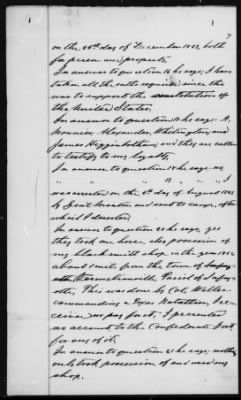 7
on the 20th day of December 1862, both
for person and property.
In answer to question 12 he says; I have
taken all the oaths required since the
war to support the constitution of
the United States.
In answer to question 13 he says: H.
Monnier, Alexander, Whittington, and
James Higginbotham; and they are called
to testify to my loyalty.
In answer to question 15 he says: no
" " " " " I
was enrolled on the 6th day of August 1862
by Lieut. and sent to camp, after
which I deserted
In answer to question 23 he says, yes
they took one horse, also possession of
my black smith shop in the year 1862
about 1 mile from the town of
Vermilionville, Parish of Lafay-
ette. This was done by Col. Waller
commanding a Texas Battalion, I re-
ceived no pay for it. I presented
no account to the Confederate Govt
for any of it.
In answer to question 31 he says; nothing
only took possession of and used my
shop.